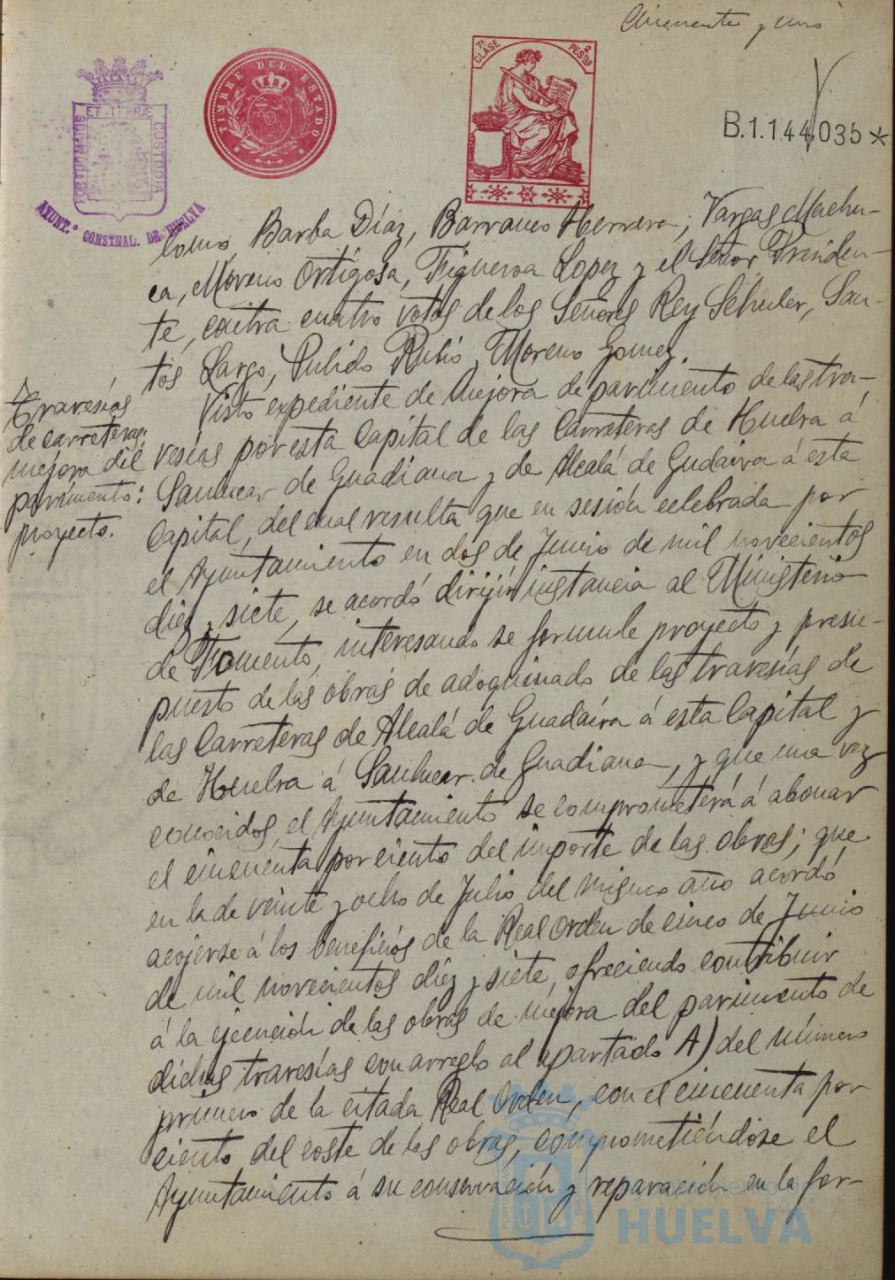 Cincuenta y uno
TIMBRE DEL ESTADO
7ª CLASE 2 PESETAS
B.1.144,035*
PORTUS MARIS ET TERRÆ CUSTODIA
AYUNT.º CONSTNAL. DE HUELVA
lomé Barba Díaz, Barranco Herrera, Vargas Machu-
ca, Moreno Ortigosa, Figueroa Lopez y el Señor Presiden-
te, contra cuatro votos de los Señores Rey Schuler, San-
tos Largo, Pulido Rubio, Moreno Gomez.
Travesías
de carreteras:
mejora del
pavimento:
proyecto.
Visto expediente de mejora de pavimento de las tra-
vesías por esta Capital de las Carreteras de Huelva á
Sanlucar de Guadiana y de Alcalá de Gudaira á esta
Capital, del cual resulta que en sesión celebrada por
el Ayuntamiento en dos de Junio de mil novecientos
diez y siete, se acordó dirijir instancia al Ministerio
de Fomento, interesando se formule proyecto y presu-
puesto de las obras de adoquinado de las travesías de
las Carreteras de Alcalá de Guadaira á esta Capital y
de Huelva á Sanlucar de Guadiana, y que una vez
conocidos, el Ayuntamiento se comprometerá á abonar
el cincuenta por ciento del importe de las obras; que
en la de veinte y ocho de Julio del mismo año acordó
acojerse á los beneficios de la Real Orden de cinco de Junio
de mil novecientos diez y siete, ofreciendo contribuir
á la ejecución de las obras de mejora del pavimento de
dichas travesías con arreglo al apartado A) del número
primero de la citada Real Orden, con el cincuenta por
ciento del coste de las obras, comprometiéndose el
Ayuntamiento á su conservación y reparación en la for-
Ayuntamiento de
HUELVA